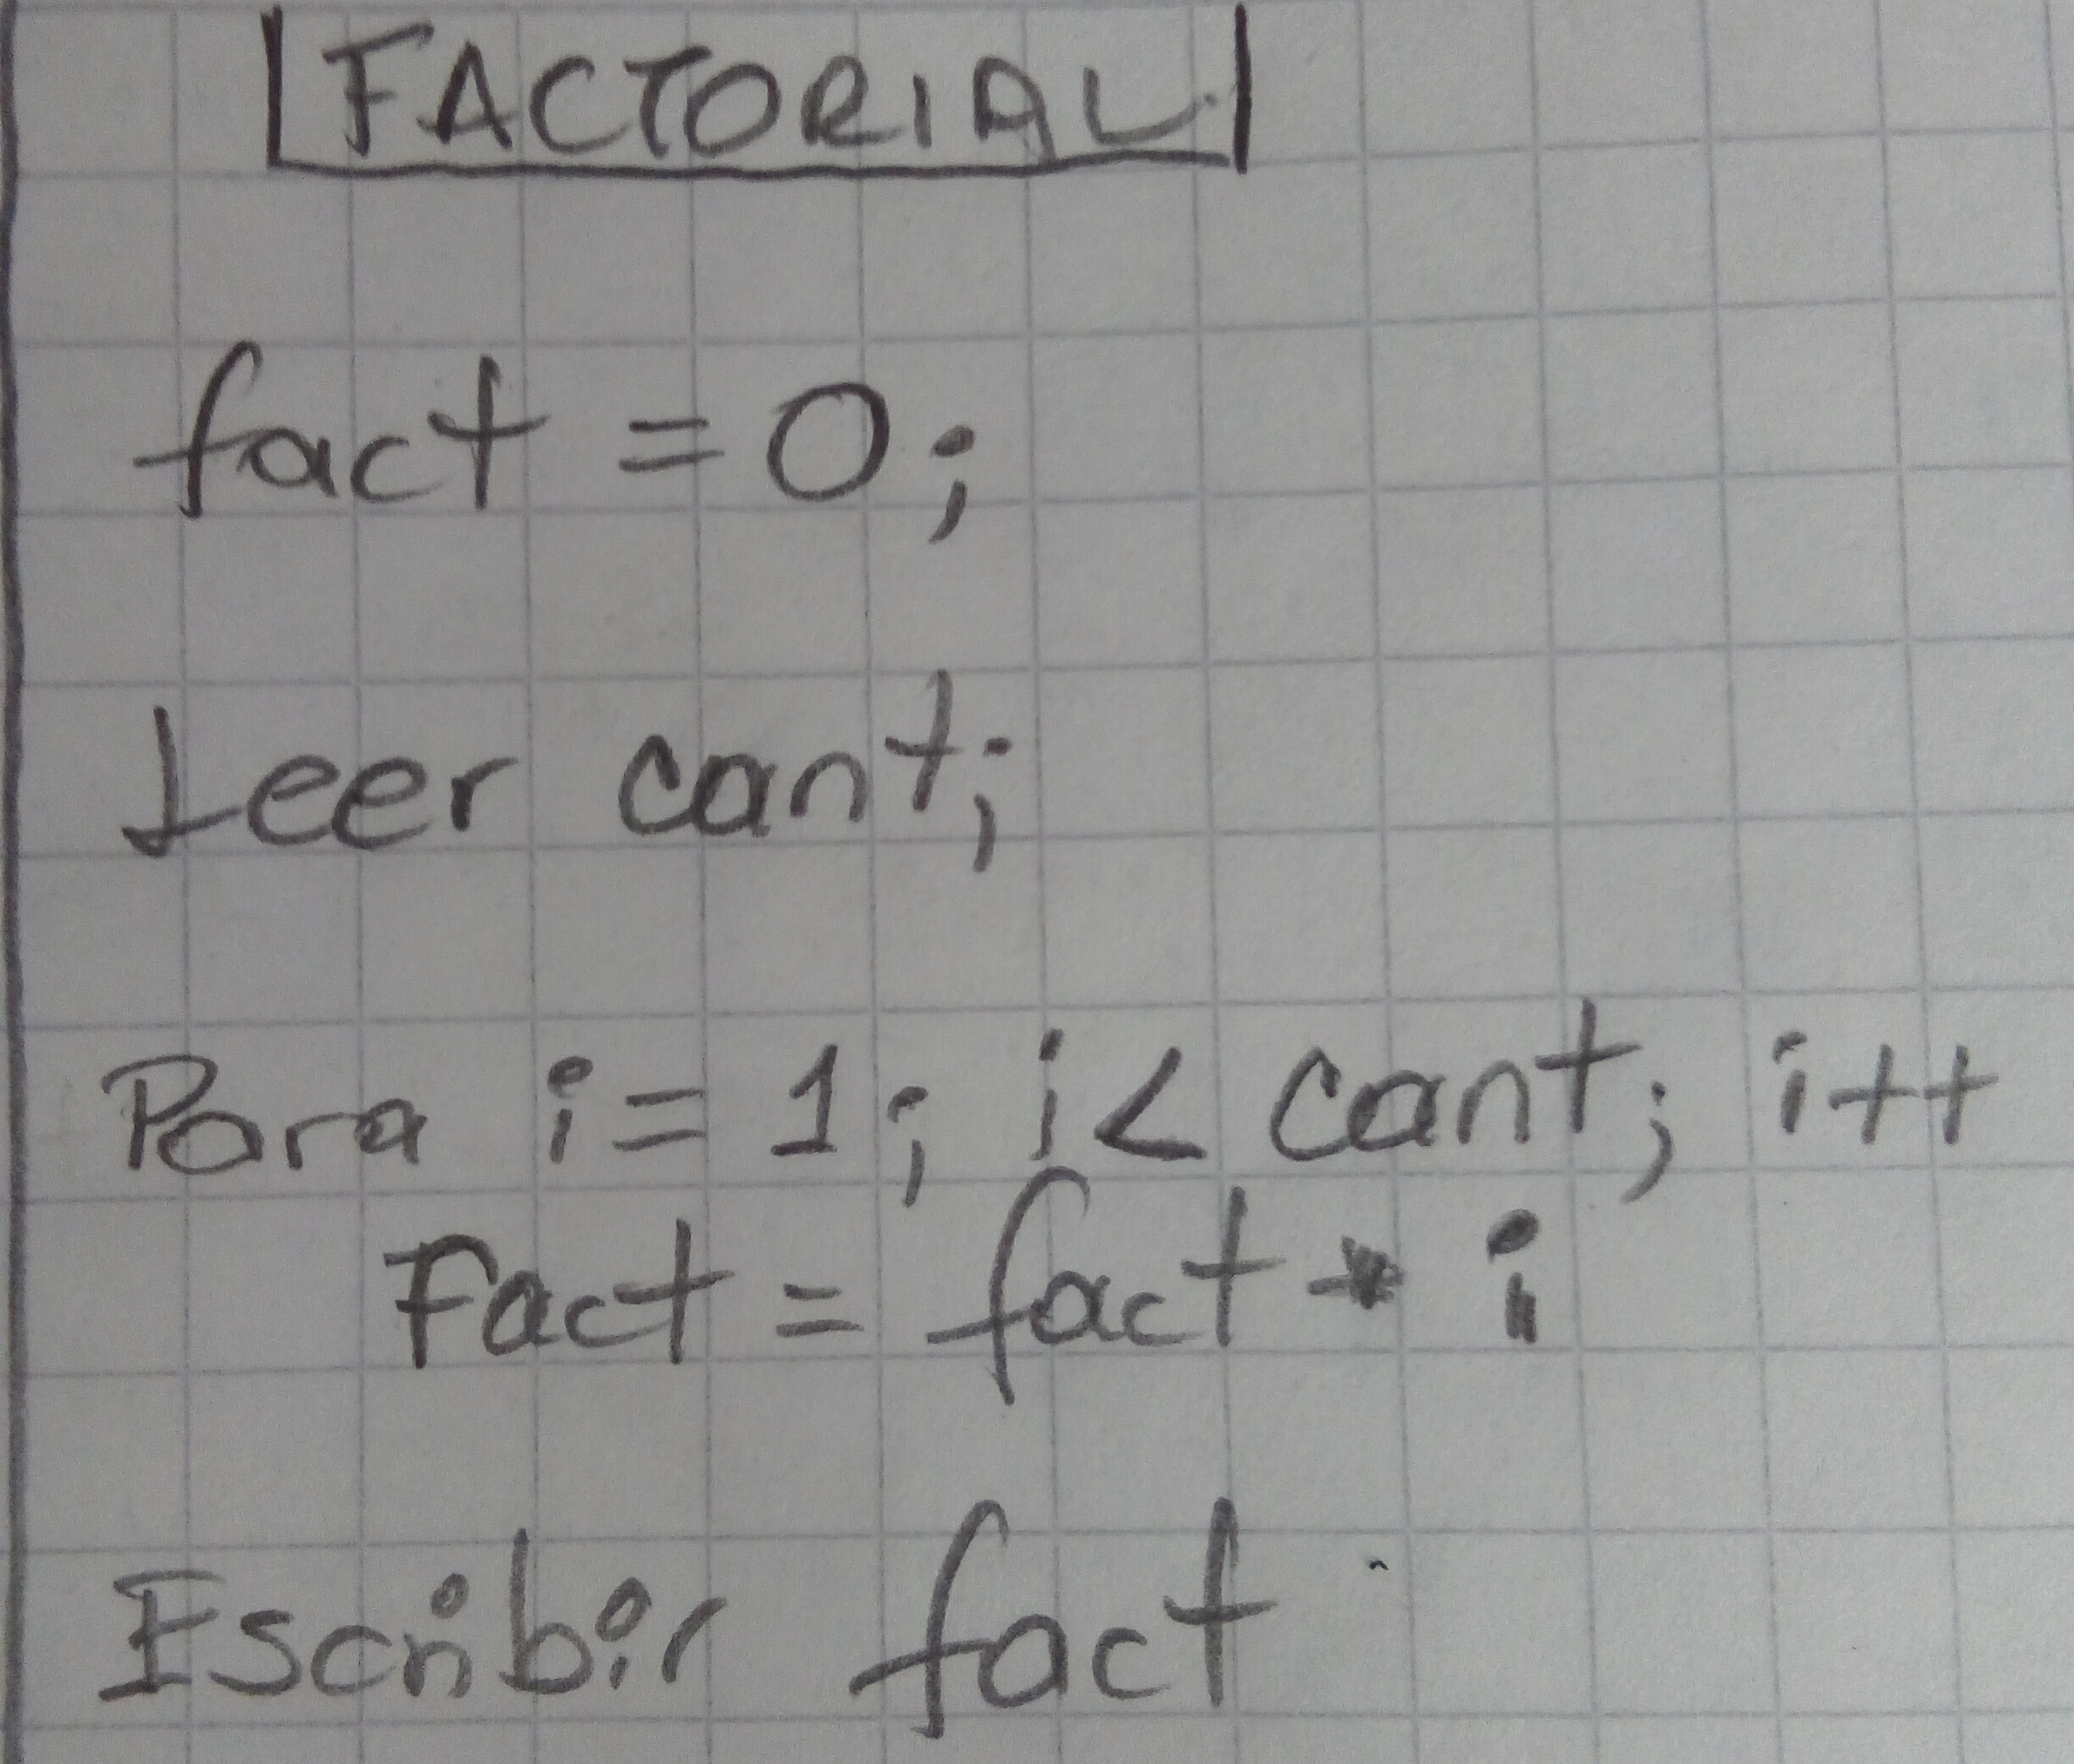 FACTORIAL
fact = 0;
Leer cant;
Para i = 1; i < cant; i++
Fact = fact * i
Escribir fact